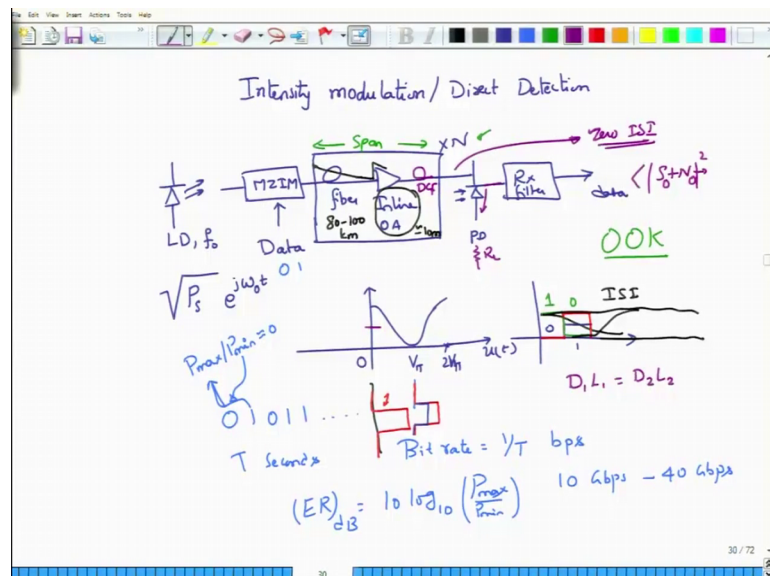 File Edit View Insert Actions Tools Help
B I
Intensity modulation / Direct Detection
Span ×N
Zero ISI
MZIM
fiber
80-100 km
Inline OA
DCF
≈10m
Rx filter
data
LD, f₀
Data
PD
R_L
OOK
√P_s e^{jω₀t}
0 1
1 0 ISI
0 1
0 V_π 2V_π u(t)
D₁L₁ = D₂L₂
Pmax/Pmin=0
0 1 0 1 1 ....
1
T seconds
Bit rate = 1/T bps
10 Gbps - 40 Gbps
(ER)_dB = 10 log₁₀ (Pmax/Pmin)
30 / 72
30